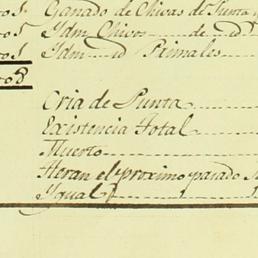 Ganado de Chivas de Punta
Ydm Chivos de id
Ydm id Primales
Cria de Punta
Existencia Total
Muerto
Heran el proximo pasado
Ygual